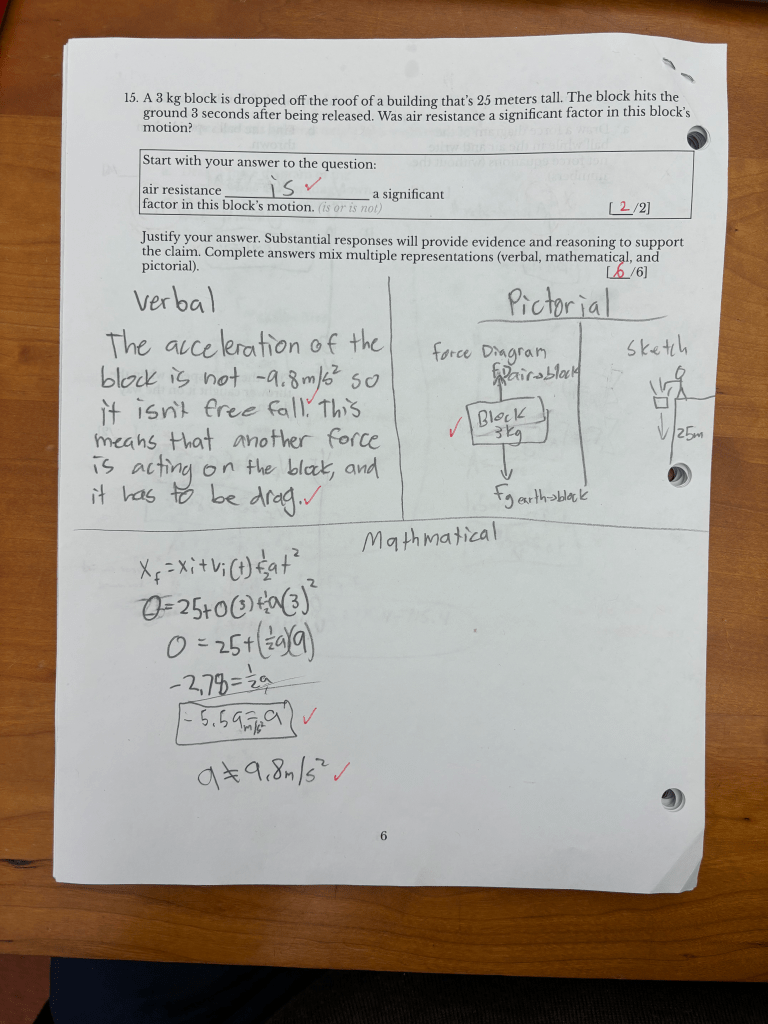 15. A 3 kg block is dropped off the roof of a building that's 25 meters tall. The block hits the
ground 3 seconds after being released. Was air resistance a significant factor in this block's
motion?
Start with your answer to the question:
air resistance is ✓ a significant
factor in this block's motion. (is or is not)
[ 2 /2]
Justify your answer. Substantial responses will provide evidence and reasoning to support
the claim. Complete answers mix multiple representations (verbal, mathematical, and
pictorial).
[ 6 /6]
Verbal
The acceleration of the
block is not -9.8m/s² so
it isn't free fall. ✓ This
means that another force
is acting on the block, and
it has to be drag. ✓
Pictorial
Force Diagram
FDair→block
✓ Block
3kg
Fg earth→block
Sketch
25m
Mathmatical
Xf = xi + vi(t) + ½at²
0 = 25 + 0(3) + ½a(3)²
0 = 25 + (½a)(9)
-2.78 = ½a
-5.59 m/s² = a ✓
a ≠ 9.8m/s² ✓
6